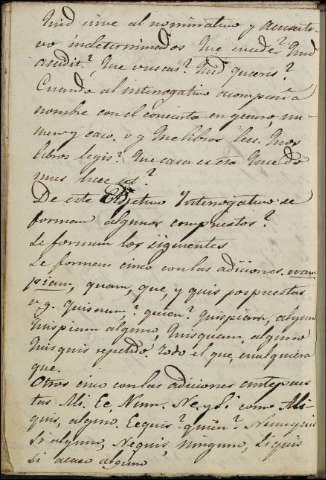 Quid sirve al nominativo y acusati-
vo indeterminados Que sucede? Quid
accidit?, Que buscas? Quid quæris?
Cuando al interogativo acompaña
nombre con el concierta en genero, nu-
mero y caso. v g Que libros lees. Quos
libros legis? Que casa es esta Quæ do
mus hæc est?
De este Adjetivo Interrogativo se
forman algunos compuestos?
Se forman los siguientes
Se forman cinco con las adiciones, nam
piam, quam, que, y quis pospuestas
v.g. Quisnam? quien? Quispiam, alguno
Quispiam alguno Quisquam, alguno
Quisquis repetido, todo el que, cualquiera
que.
Otros cinco con las adiciones antepues
tas. Ali, Ec, Num. Ne, y Si como Ali
quis, alguno. Ecquis quien? Numquis
si alguno, Nequis, ninguno, Siquis
si acaso alguno